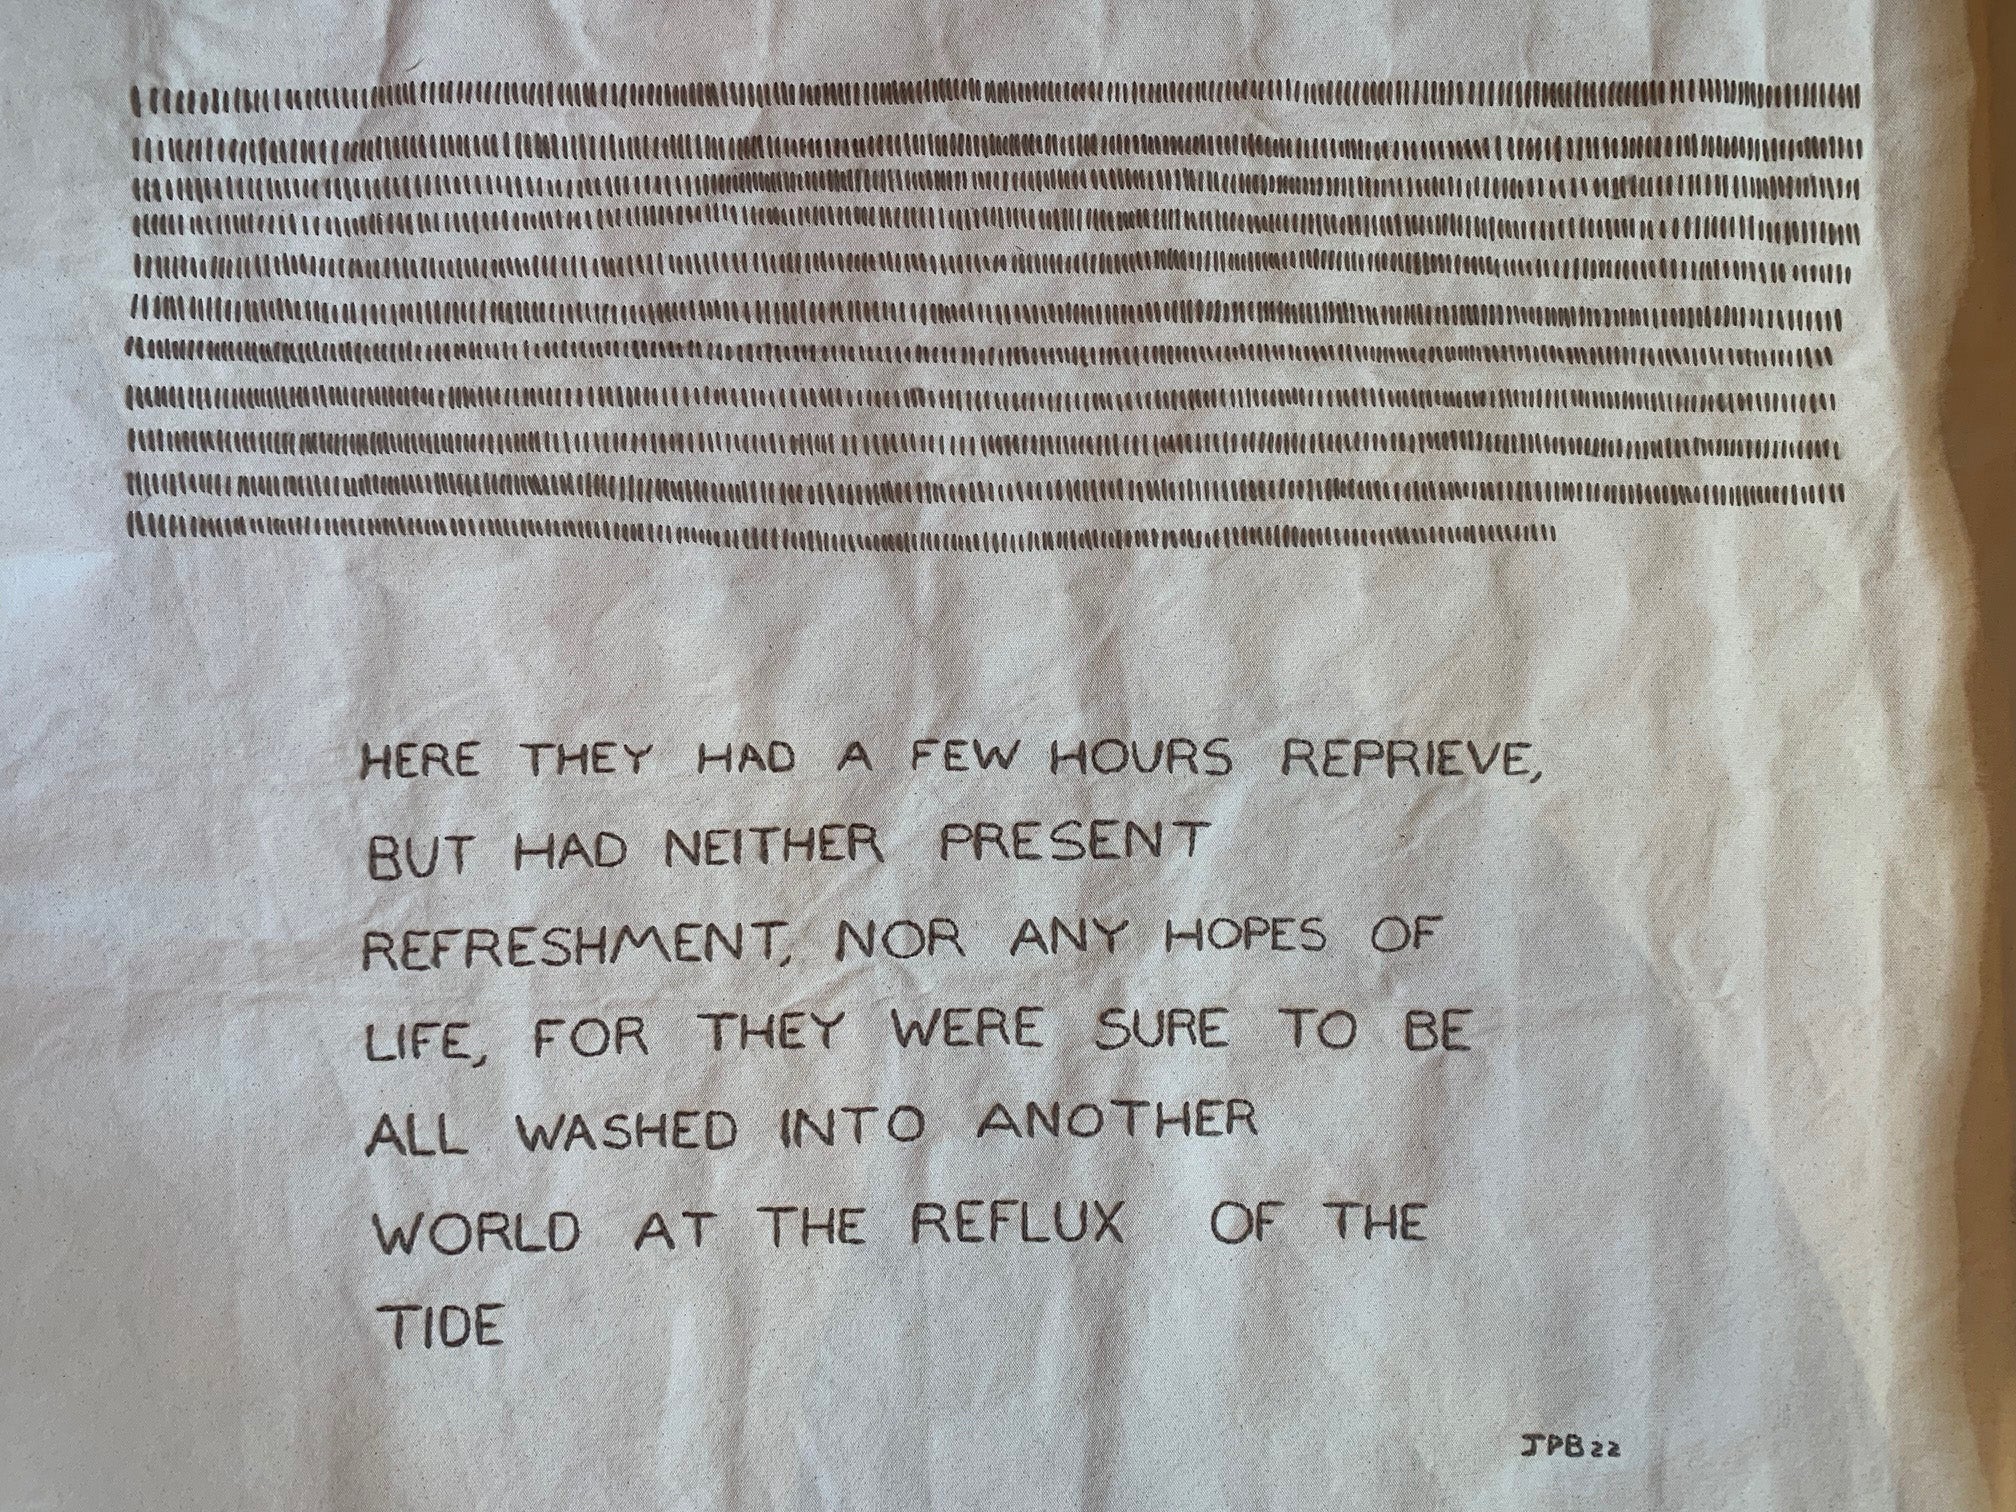 HERE THEY HAD A FEW HOURS REPRIEVE,
BUT HAD NEITHER PRESENT
REFRESHMENT, NOR ANY HOPES OF
LIFE, FOR THEY WERE SURE TO BE
ALL WASHED INTO ANOTHER
WORLD AT THE REFLUX OF THE
TIDE
JPB 22